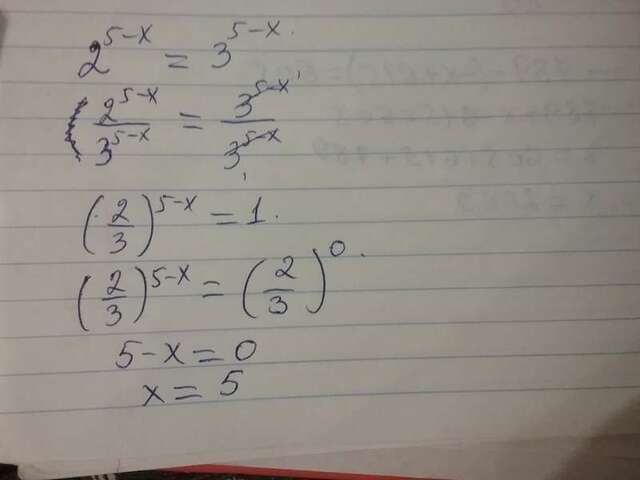 2^{5-x} = 3^{5-x}.
\frac{2^{5-x}}{3^{5-x}} = \frac{3^{5-x}}{3^{5-x}}
(\frac{2}{3})^{5-x} = 1.
(\frac{2}{3})^{5-x} = (\frac{2}{3})^{0}.
5-x = 0
x = 5